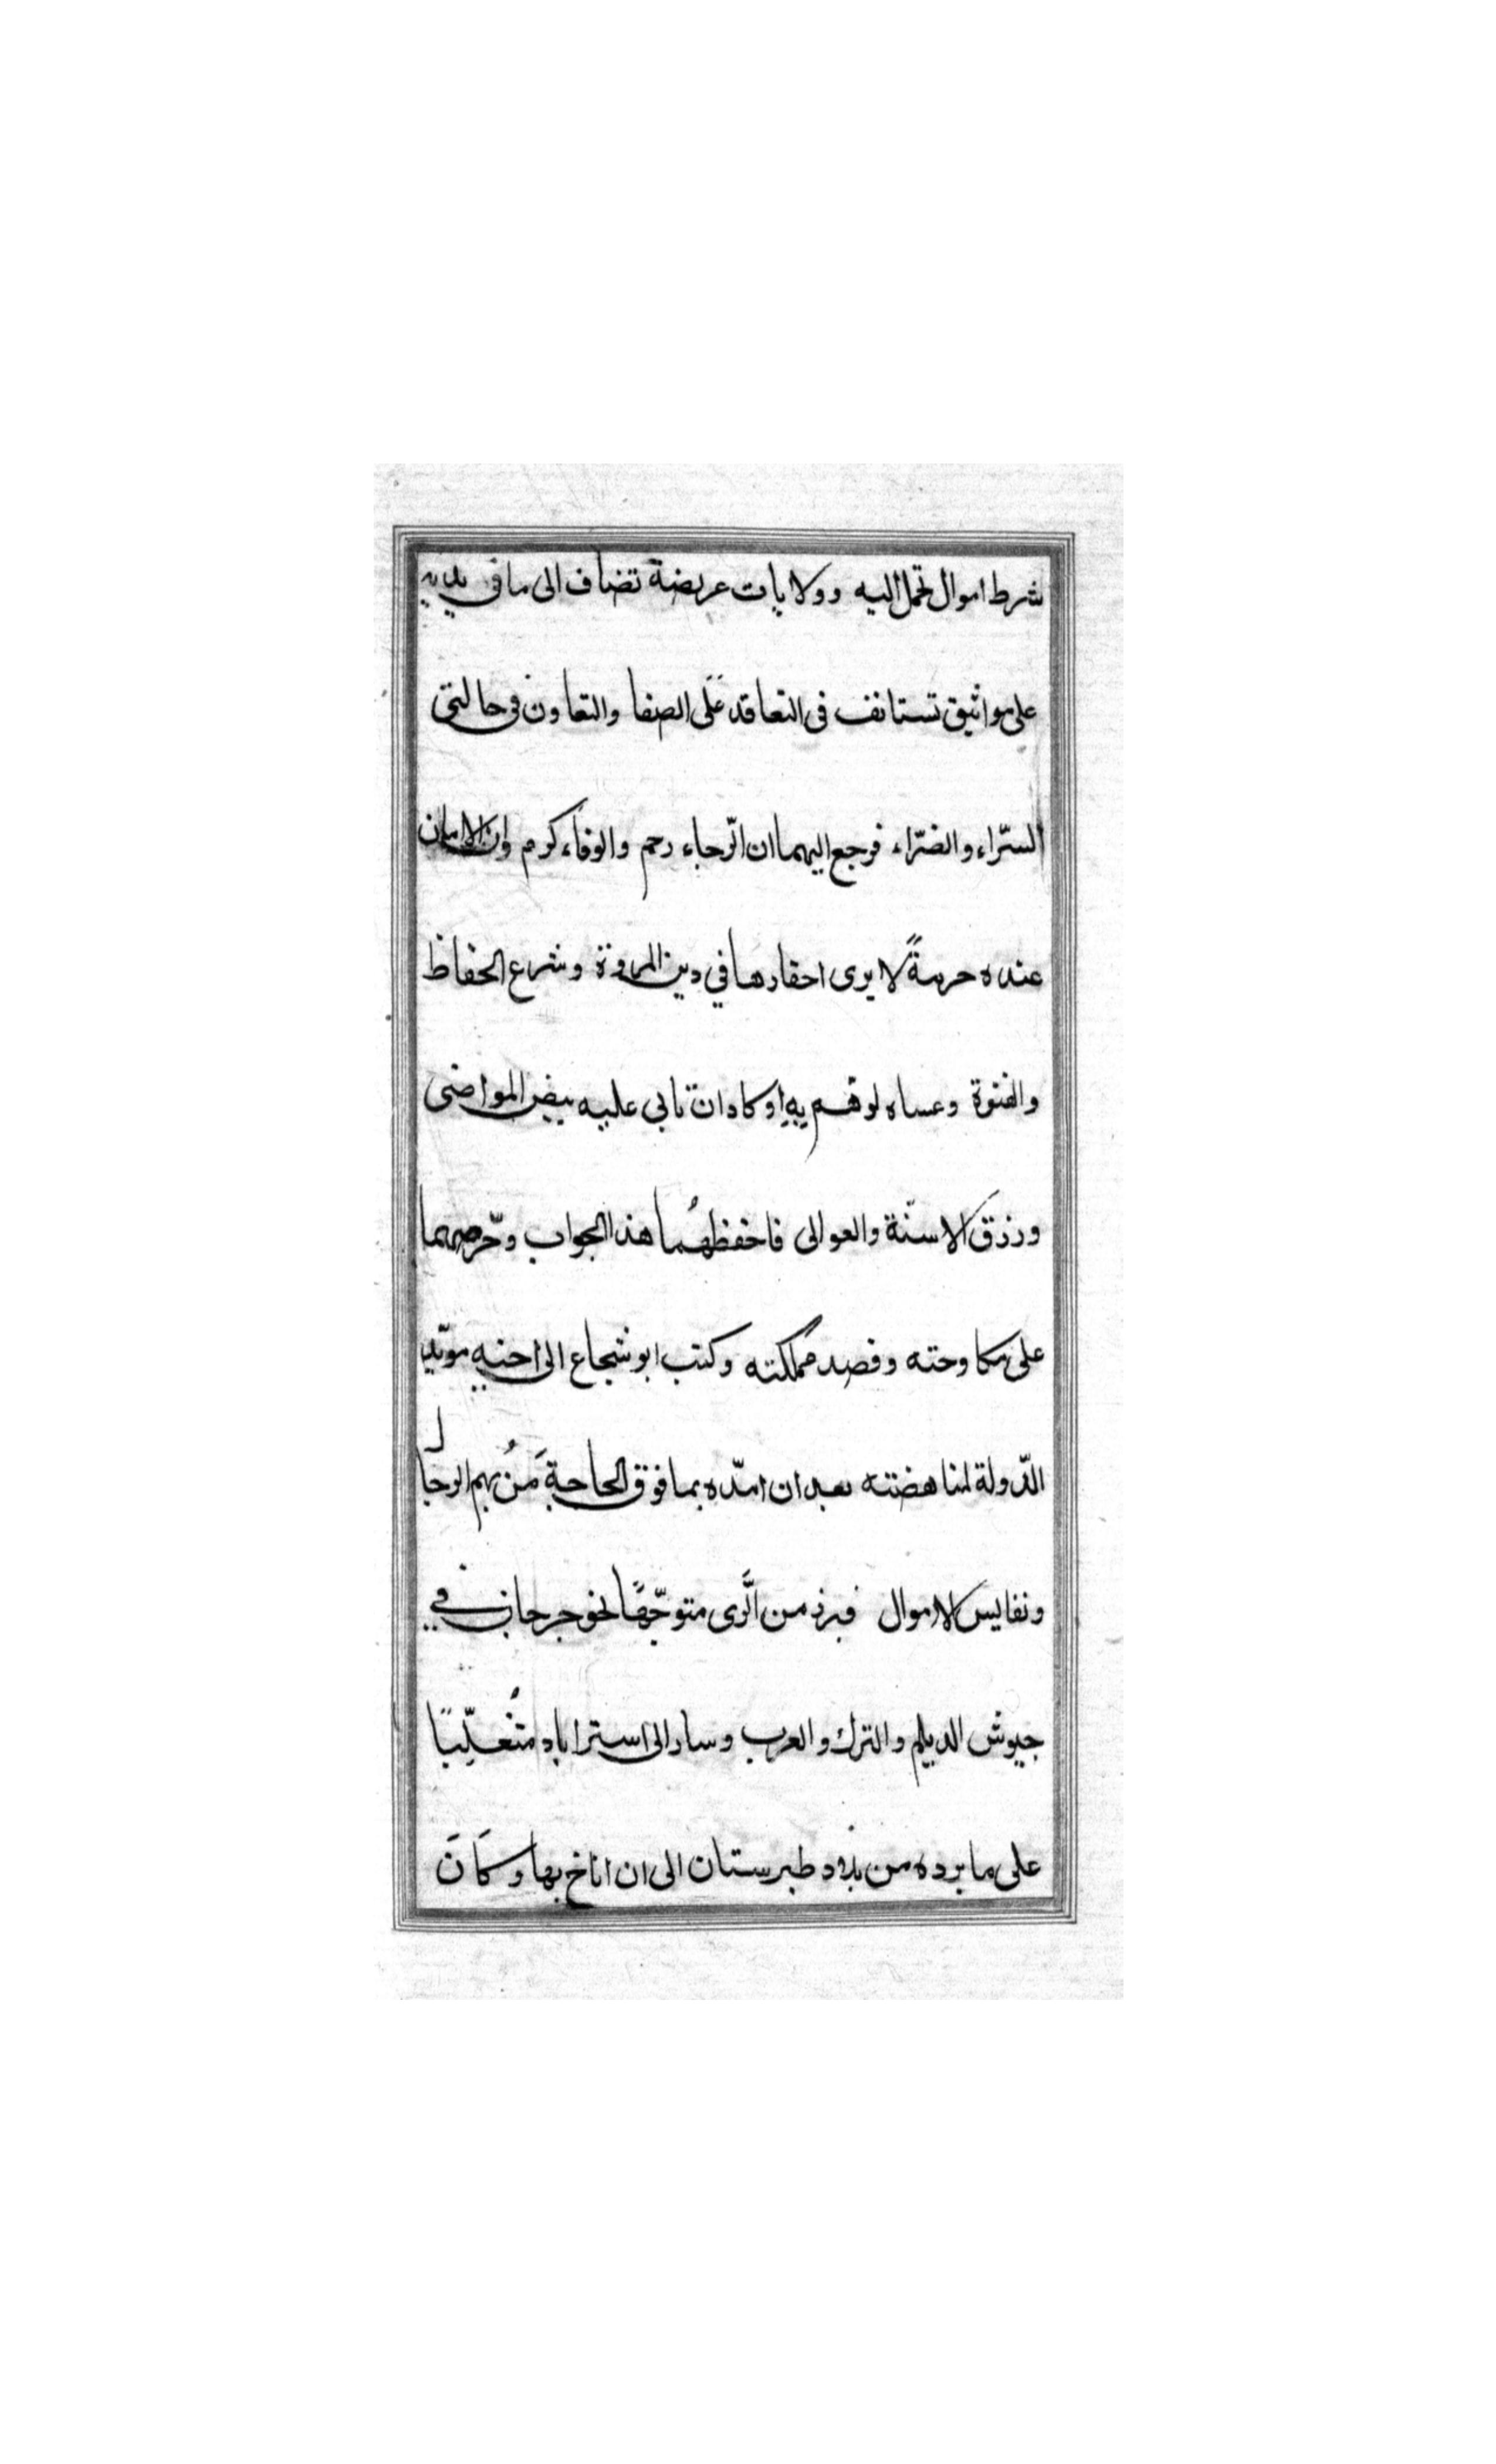 شرط اموال تحمل اليه وولايات عريضة تضاف الى ما فى يديه
على مواثيق تستانف فى التعاقد عَلَى الصفا والتعاون فى حالتى
السّراء والضّراء فرجع اليهما ان الرّجاء رحم والوفاء كرم وان للامان
عنده حرمةً لا يرى احقارها في دين المروة وشرع الحفاظ
والفتوة وعساه لو هم به او كاد ان تابى عليه بيض المواضى
وزرق الاسنّة والعوالى فاحفظهُما هذا الجواب وحّرصهما
على مكاوحته وقصد مملكته وكتب ابو شجاع الى اخيه مويّد
الدّولة لمناهضته بعد ان امدّه بما فوق الحاجة مَن بُهم الرجال
ونفايس الاموال فبرز من الرَّى متوجّهًا نحو جرجان في
جيوش الديلم والترك والعرب وسار الى استراباد مُتغلّبًا
على ما يرده من بلاد طبرستان الى ان اناخ بها وكَانَ